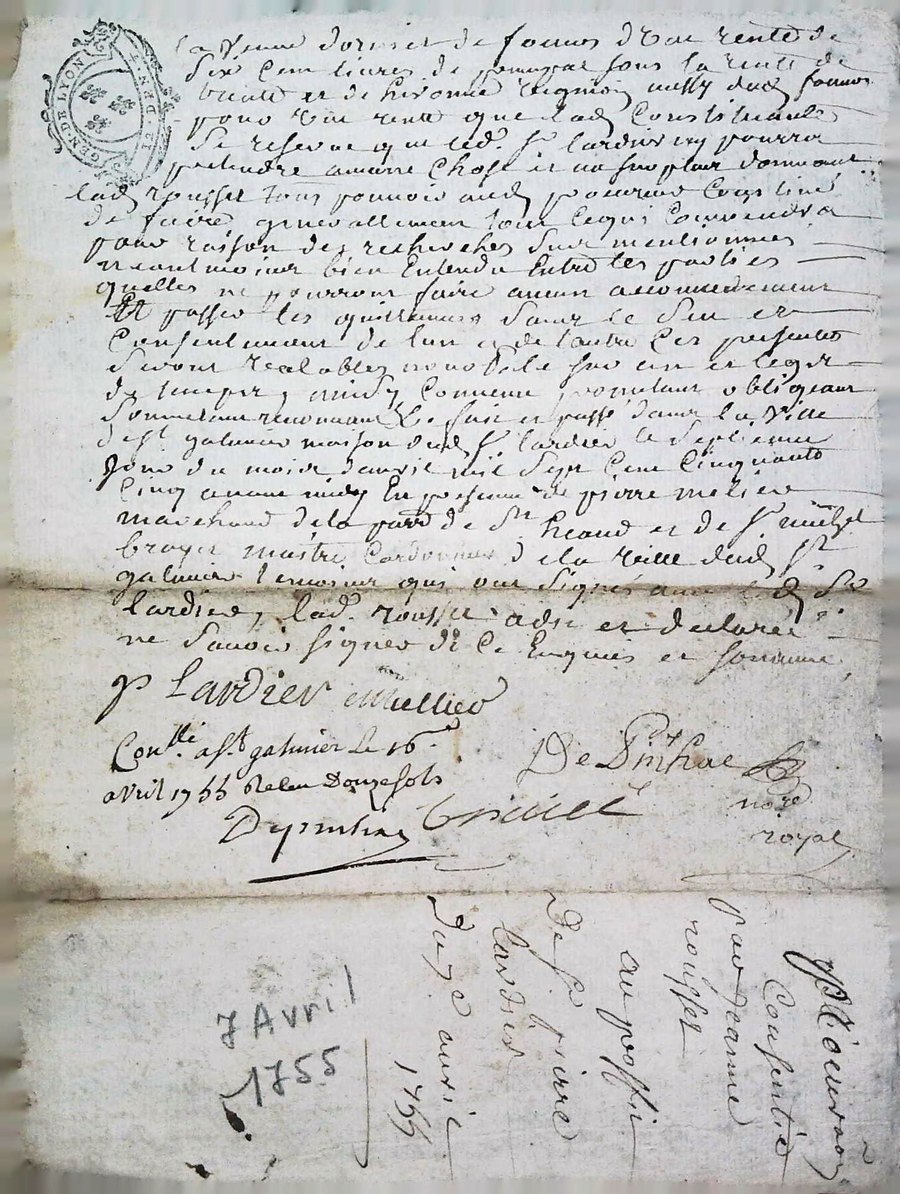 GEN. DE LYON
la veuve dornier de fornos d'Vne rente de
six cem livres de sous la rente de
trente et de hieronie aussy dud. fornos
pour Vne rente que lad. Constituante
se reserve que led. Sr. lardier ny pourra
pretendre aucune Chose et au surplus donnant
lad. rousset tous pouvoir aud. procureur Constitué
de faire generallement tout Ce que Conviendra
pour raison des recherches sus mentionnées
neantmoins bien Entendu Entre les parties
quelles ne pourront faire aucun accommodement
Et passer les quittances sans le seu et
Consentement de lun et de lautre Ces presentes
seront vealables nonobstant
de temps, ainsy Convenu promettant obligeant
soumettant renonceant &c fait et passé dans la Ville
de st. galmier maison dud. Sr. lardier le septieme
jour du mois d'avril mil sept cem Cinquante
Cinq avant midy En presence de pierre melier
marchand de la parr. de St. heand et de Sr. michel
broyer maistre Cordonnier de la Ville dud. St.
galmier temoins qui ont signés avec led. Sr.
lardier, lad. rousset a dit et declaré
ne savoir signer de Ce Enquise et sommée
P Lardier Mellier
Conllé. a St. galmier le 16e
avril 1755 Reçeu Douze sols
De Pinhac
nore
royal
Depinhac
Procuration
Consentie
par jeanne
rousset
au proffit
de Sr. pierre
lardier
Du 7e avril
1755
7 Avril
1755
2